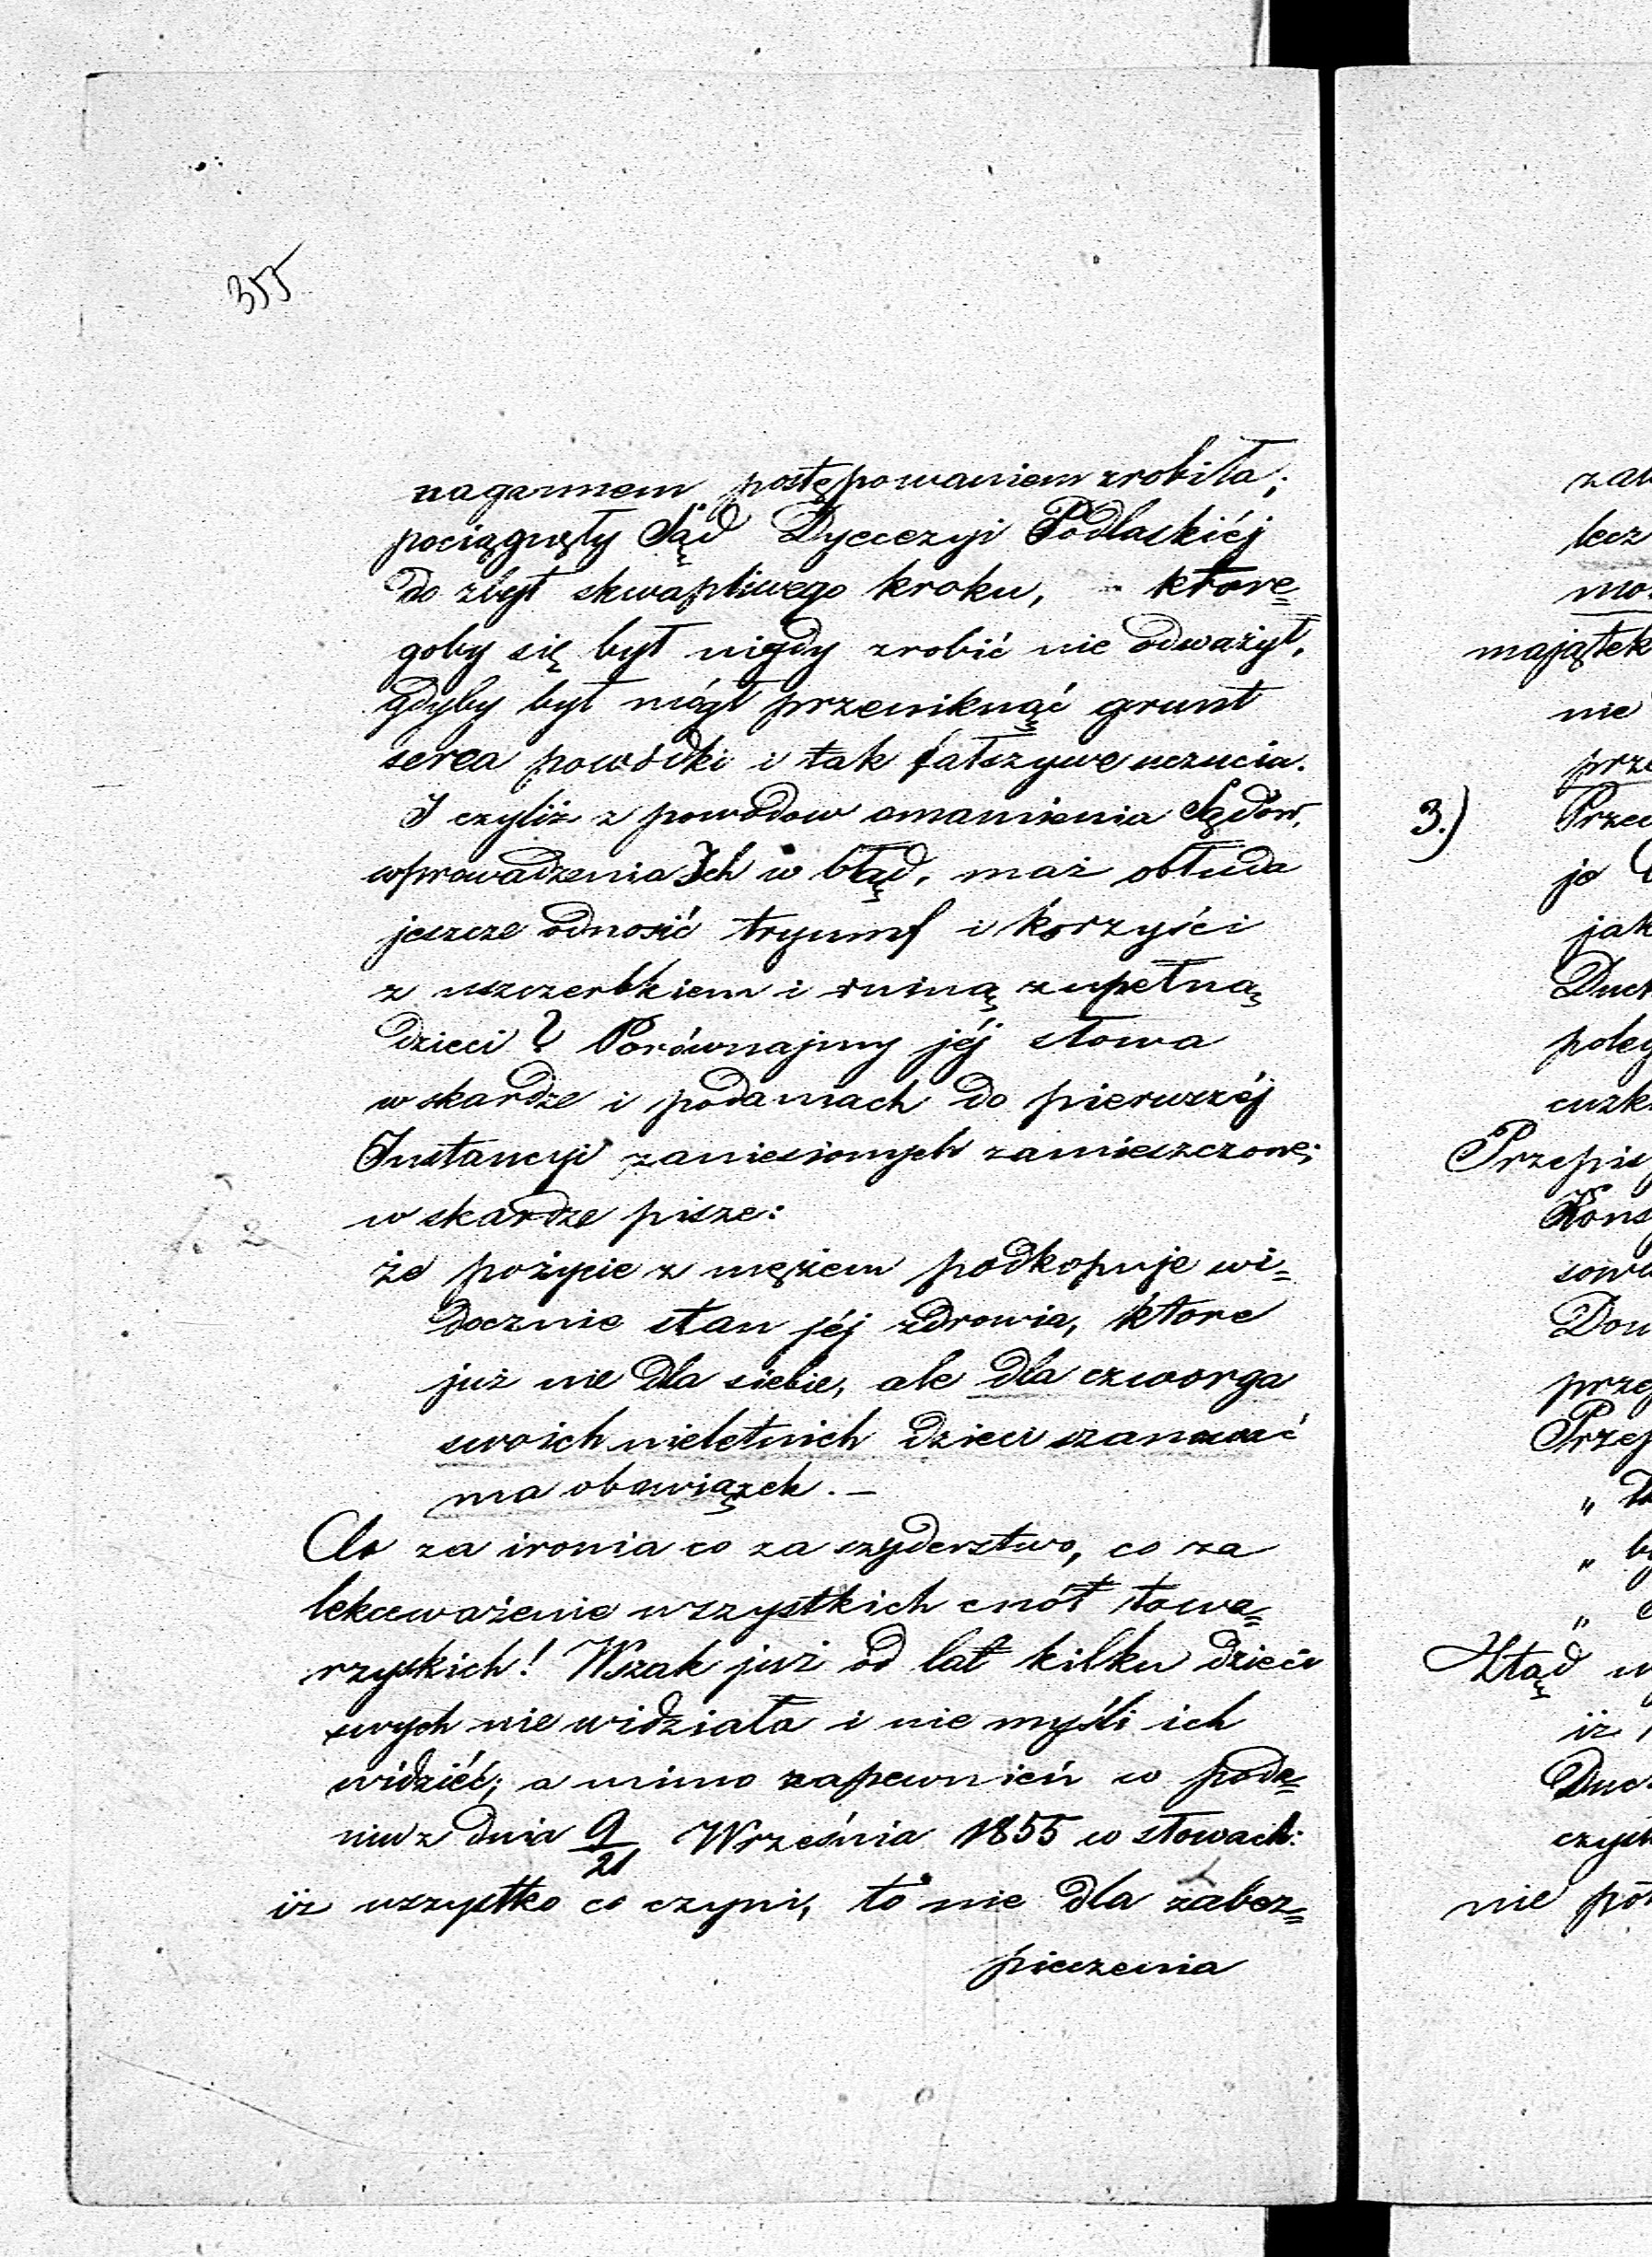 355
nagannem postępowaniem zrobiła;
pociągnęły Sąd Dyecezyi Podlaskiéj
do zbyt skwapliwego kroku, które=
goby się był nigdy zrobić nie odważył,
gdyby był mógł przeniknąć grunt
serca powódki i tak fałszywe uczucia.
I czyliż z powodow omamienia Sądów,
wprowadzenia Ich w błąd, maż obłuda
jeszcze odnosić tryumf i korzyści
z uszczerbkiem i ruiną zupełną
dzieci? Porównajmy jéj słowa
w skardze i podaniach do pierwszéj
Instancyi zaniesionych zamieszczone;
w skardze pisze:
że pożycie z mężem podkopuje wi=
docznie stan jéj zdrowia, które
już nie dla siebie, ale dla czworga
swoich nieletnich dzieci szanować
ma obowiązek. —
Co za ironia co za szyderstwo, co za
lekceważenie wszystkich cnót towa=
rzyskich! Wszak już od lat kilku dzieci
swych nie widziała i nie myśli ich
widzieć; a mimo zapewnień w poda=
niu z dnia 9/21 Września 1855 w słowach:
iż wszystko co czyni, to nie dla zabez=
pieczenia
lecz
majątek
nie
3.)
jak
Przepis
Ztąd
iż
nie